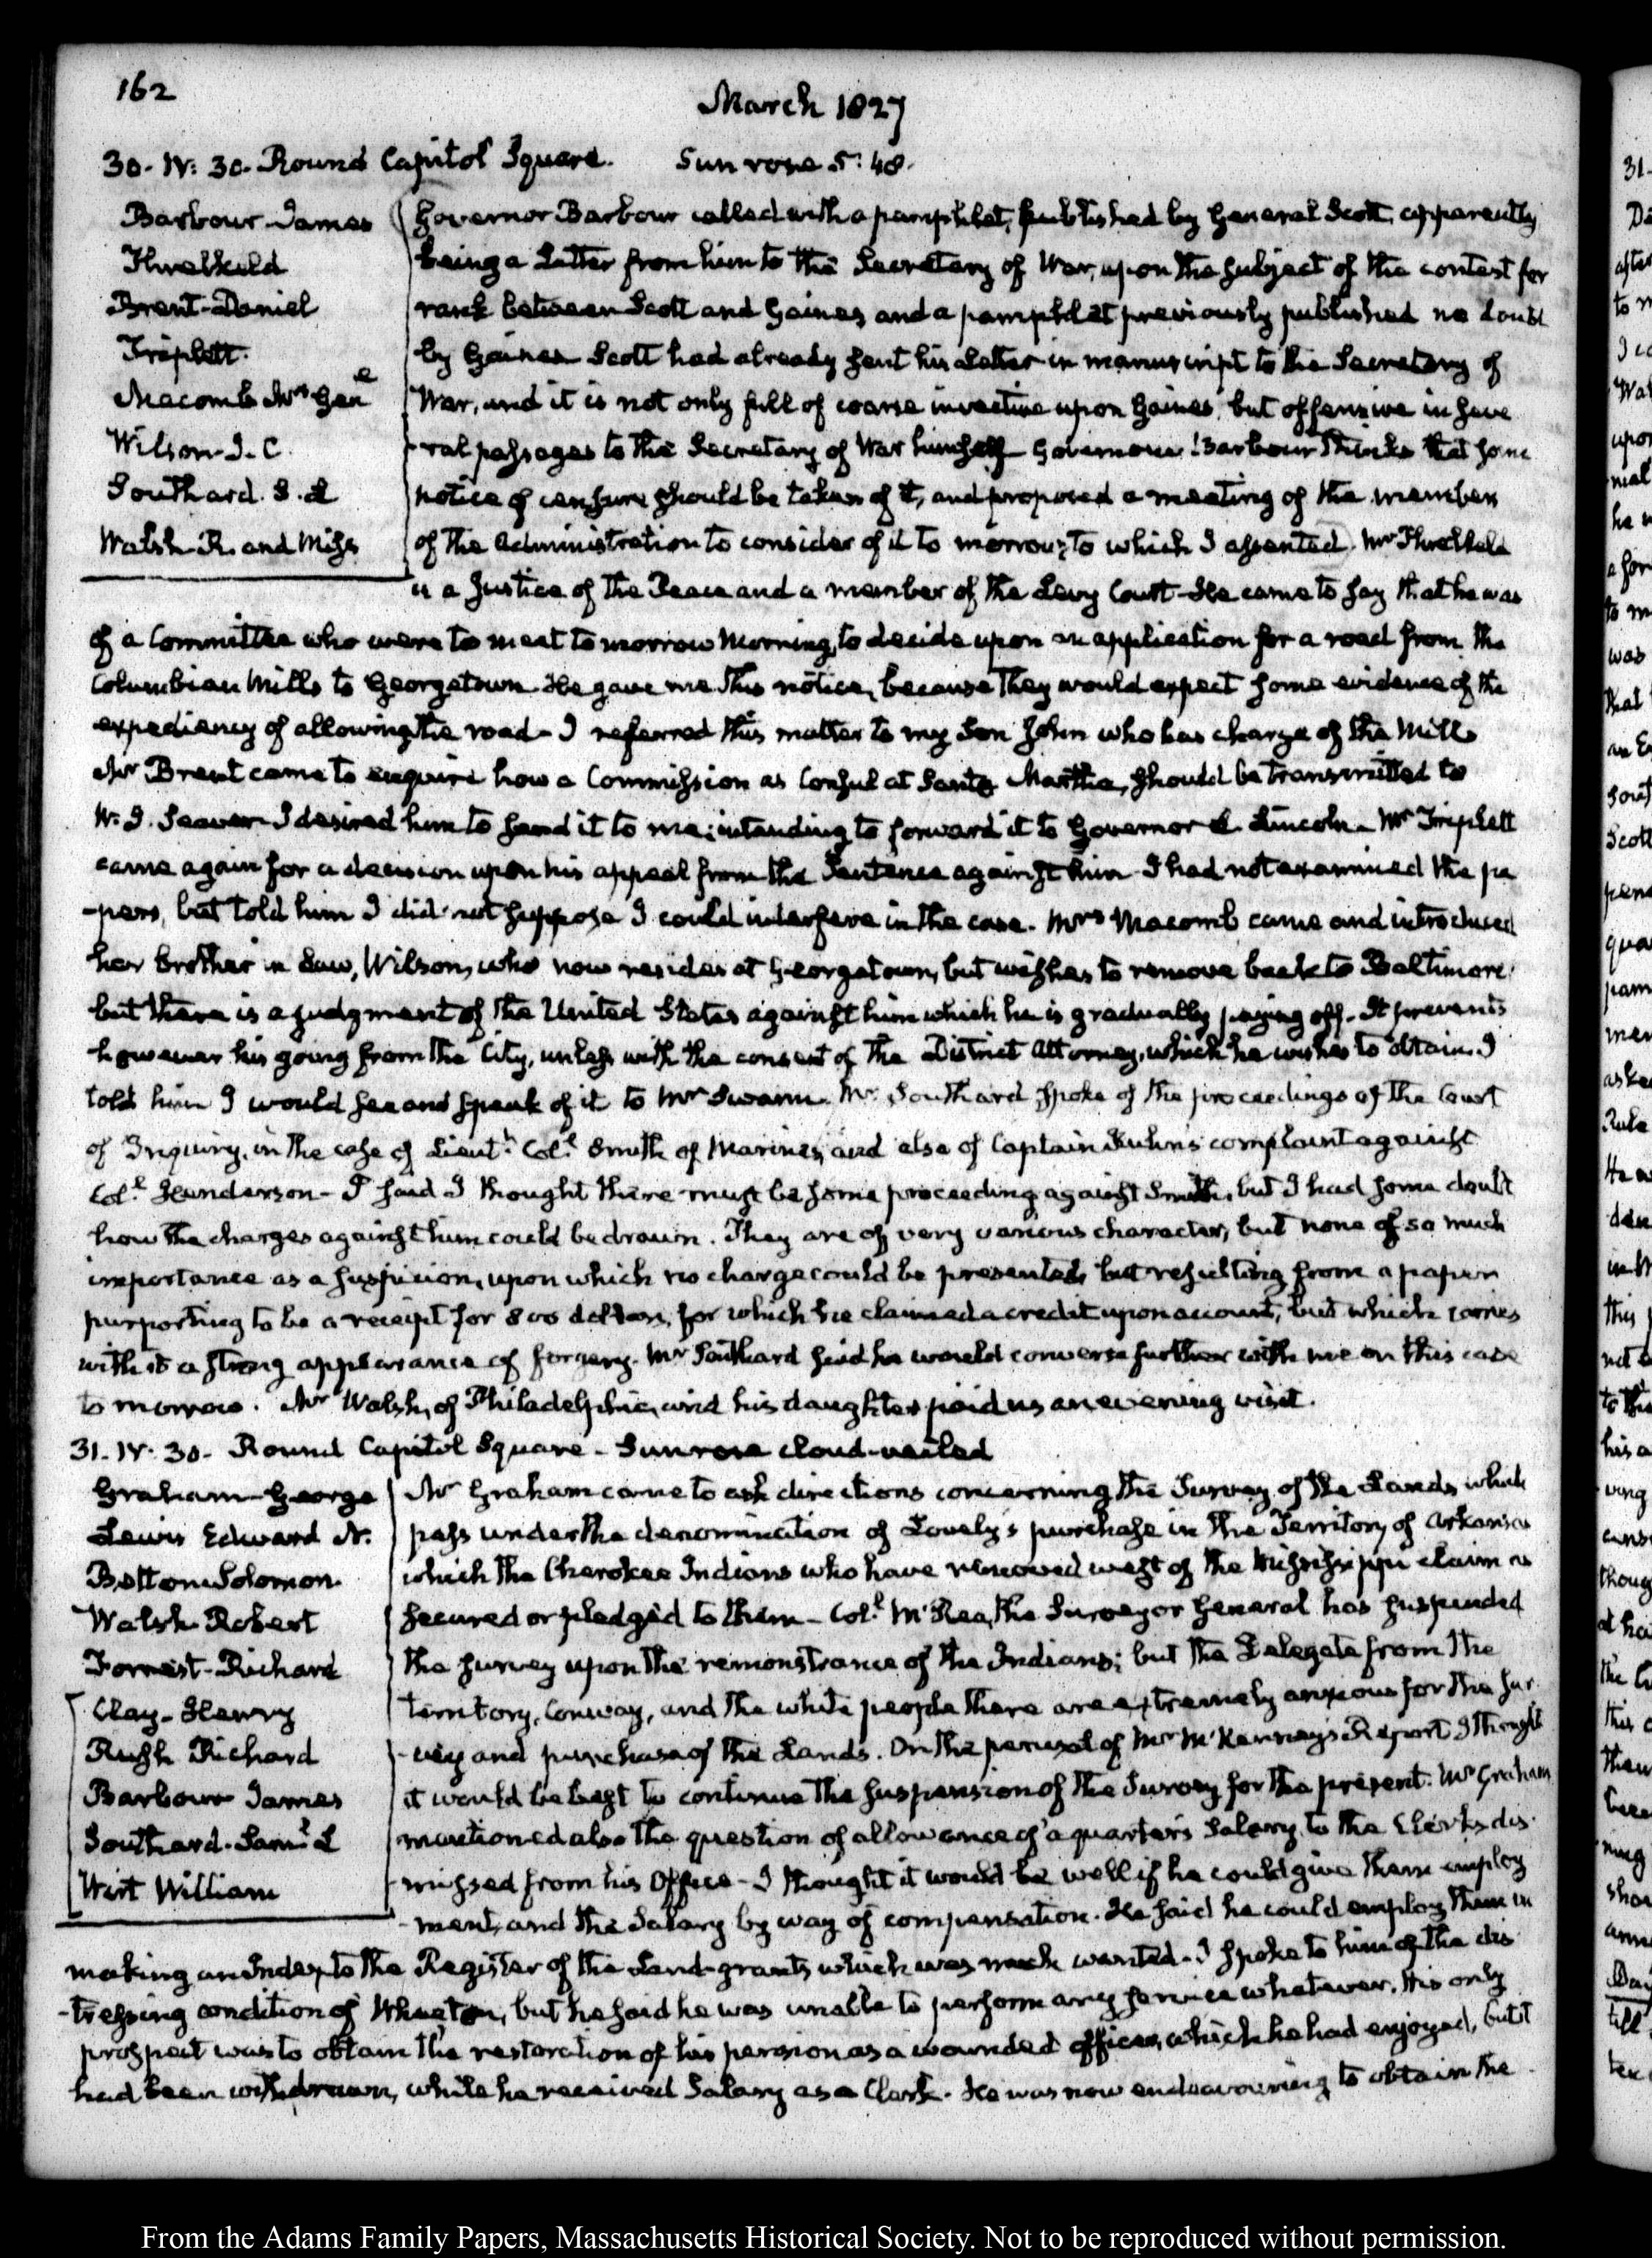 162
March 1827
30. IV: 30. Round Capitol Square. Sun rose 5:48.
Barbour James
Threlkeld
Brent Daniel
Triplett.
Macomb Mrs Genl
Wilson J. C.
Southard. S. L
Walsh R. and Miss
Governor Barbour called with a pamphlet, published by General Scott, apparently
being a Letter from him to the Secretary of War, upon the subject of the contest for
rank between Scott and Gaines and a pamphlet previously published no doubt
by Gaines Scott had already sent his Letter in manuscript to the Secretary of
War, and it is not only full of coarse invective upon Gaines, but offensive in seve
-ral passages to the Secretary of War himself Governour Barbour thinks that some
notice of censure should be taken of it, and proposed a meeting of the members
of the Administration to consider of it to morrow; to which I assented. Mr Threlkeld
is a Justice of the Peace and a member of the Levy Court. He came to say that he was
of a Committee who were to meet to morrow Morning, to decide upon an application for a road from the
Columbian Mills to Georgetown. He gave me this notice, because they would expect some evidence of the
expediency of allowing the road. I referred this matter to my Son John who has charge of the Mills
Mr Brent came to enquire how a Commission as Consul at Santa Martha, should be transmitted to
W. J. Seaver. I desired him to send it to me; intending to forward it to Governor L. Lincoln. Mr Triplett
came again for a decision upon his appeal from the Sentence against him. I had not examined the pa
-pers, but told him I did not suppose I could interfere in the case. Mrs Macomb came and introduced
her brother in Law, Wilson, who now resides at Georgetown, but wishes to remove back to Baltimore;
but there is a judgment of the United States against him which he is gradually paying off. It prevents
however his going from the City, unless with the consent of the District Attorney, which he wishes to obtain. I
told him I would see and speak of it to Mr Swann. Mr. Southard spoke of the proceedings of the Court
of Inquiry, in the case of Lieutt Coll Smith of Marines, and also of Captain Kuhn's complaint against
Coll Henderson. I said I thought there must be some proceeding against Smith, but I had some doubt
how the charges against him could be drawn. They are of very various character, but none of so much
importance as a suspicion, upon which no charge could be presented, but resulting from a paper
purporting to be a receipt for 800 dollars, for which he claimed a credit upon account, but which carries
with it a strong appearance of forgery. Mr Southard said he would converse further with me on this case
to morrow. Mr Walsh, of Philadelphia, and his daughter paid us an evening visit.
31. IV. 30. Round Capitol Square. Sun rose cloud-veiled
Graham George
Lewis Edward
Betton Solomon
Walsh Robert
Forrest Richard
Clay Henry
Rush Richard
Barbour James
Southard. Saml L
Wirt William
Mr Graham came to ask directions concerning the Survey of the Lands which
pass under the denomination of Lovely's purchase in the Territory of Arkansas
which the Cherokee Indians who have removed west of the Mississippi claim as
secured or pledged to them. Coll McRea, the Surveyor General has suspended
the survey upon the remonstrance of the Indians; but the Delegate from the
territory, Conway, and the white people there are extremely anxious for the sur
-vey and purchase of the Lands. On the perusal of Mr McKenney's Report I thought
it would be best to continue the suspension of the Survey for the present. Mr Graham
mentioned also the question of allowance of a quarter's Salary, to the Clerks dis
-missed from his Office. I thought it would be well if he could give them employ
-ment, and the Salary by way of compensation. He said he could employ them in
making an Index to the Register of the Land-grants which was much wanted. I spoke to him of the dis
-tressing condition of Wheaton, but he said he was unable to perform any service whatever. His only
prospect was to obtain the restoration of his pension as a wounded officer, which he had enjoyed, but it
had been withdrawn, while he received Salary as a Clerk. He was now endeavouring to obtain the
From the Adams Family Papers, Massachusetts Historical Society. Not to be reproduced without permission.